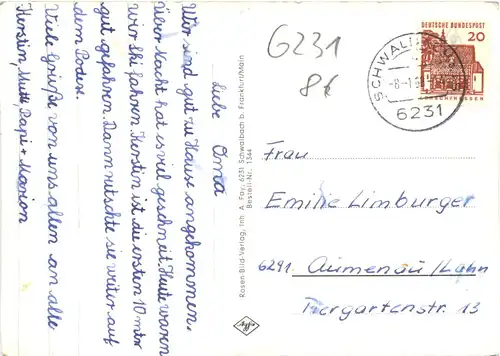 Liebe Oma
Wir sind gut zu Hause angekommen.
Über Nacht hat es viel geschneit. Heute waren
wir Ski fahren. Kerstin ist die ersten 10 mtr
gut gefahren. Dann rutschte sie weiter auf
dem Podex.
Viele Grüße von uns allen an alle
Kerstin, Mutti Papi + Marion
Rosen-Bild-Verlag, Inh. A. Fay, 6231 Schwalbach b. Frankfurt/Main
Bestell-Nr. 1344
6231
8€
DEUTSCHE BUNDESPOST
20
LORSCH/HESSEN
SCHWALBACH
6231
Frau
Emilie Limburger
6291 Aumenau/Lahn
Tiergartenstr. 13